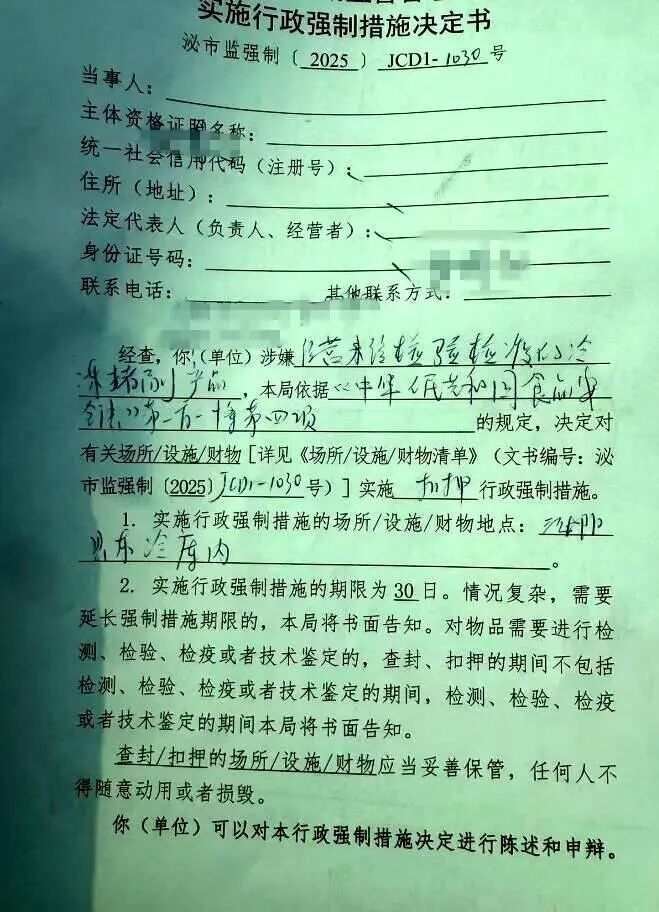 实施行政强制措施决定书
泌市监强制〔2025〕JCD1-1030号
当事人：
主体资格证照名称：
统一社会信用代码（注册号）：
住所（地址）：
法定代表人（负责人、经营者）：
身份证号码：
联系电话：其他联系方式：
经查，你（单位）涉嫌经营未经检验检疫的冷
冻猪副产品，本局依据《中华人民共和国食品安
全法》第一百一十条第四项的规定，决定对
有关场所/设施/财物[详见《场所/设施/财物清单》（文书编号：泌
市监强制〔2025〕JCD1-1030号）]实施扣押行政强制措施。
1. 实施行政强制措施的场所/设施/财物地点：
冷库内。
2. 实施行政强制措施的期限为30日。情况复杂，需要
延长强制措施期限的，本局将书面告知。对物品需要进行检
测、检验、检疫或者技术鉴定的，查封、扣押的期间不包括
检测、检验、检疫或者技术鉴定的期间，检测、检验、检疫
或者技术鉴定的期间本局将书面告知。
查封/扣押的场所/设施/财物应当妥善保管，任何人不
得随意动用或者损毁。
你（单位）可以对本行政强制措施决定进行陈述和申辩。